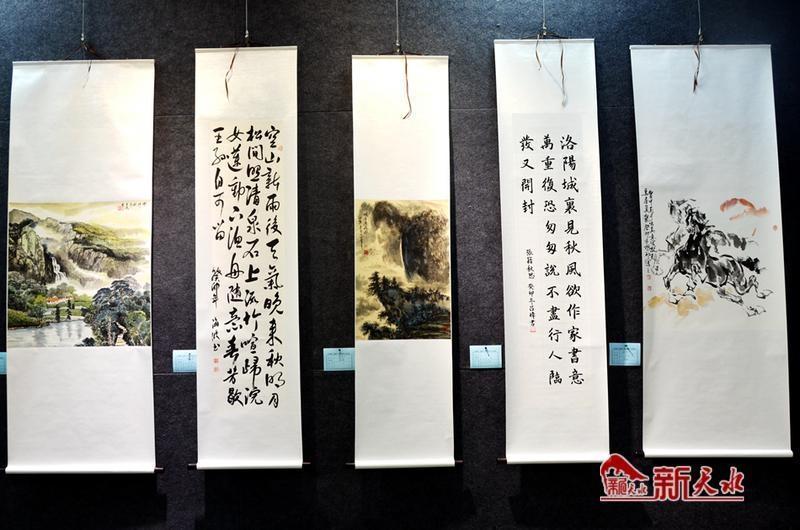 空山新雨後天氣晚来秋明月
松間照清泉石上流竹喧歸浣
女蓮動下渔舟隨意春芳歇
王孙自可留
癸卯年
洛陽城裏見秋風欲作家書意
萬重復恐匆匆說不盡行人臨
發又開封
張籍秋思 癸卯冬
新天水